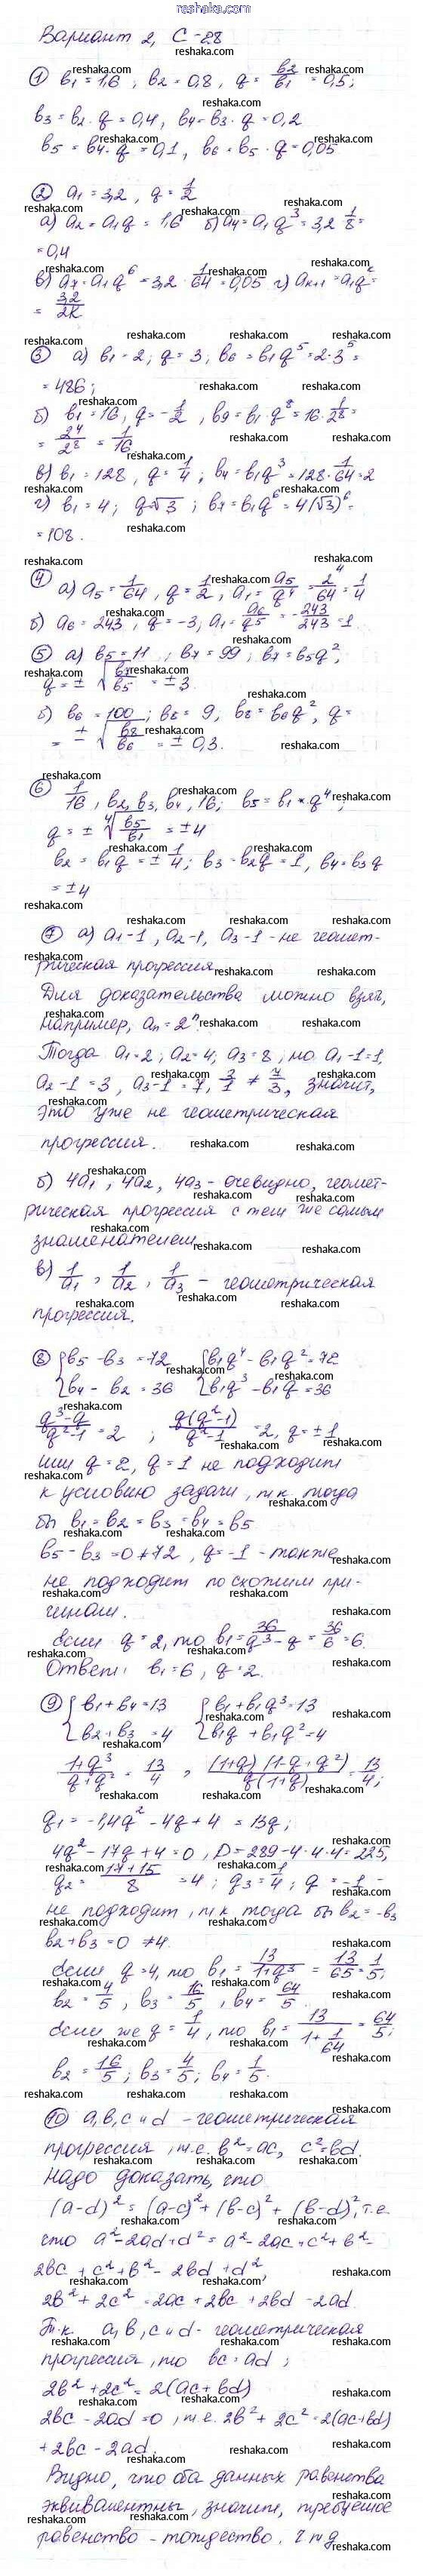 reshaka.com
Вариант 2, С-28
① b1 = 1,6, b2 = 0,8, q = b2/b1 = 0,5;
b3 = b2·q = 0,4, b4 = b3·q = 0,2
b5 = b4·q = 0,1, b6 = b5·q = 0,05
② a1 = 3,2, q = 1/2
а) a2 = a1q = 1,6 б) a4 = a1q^3 = 3,2·1/8 =
= 0,4
в) a7 = a1q^6 = 3,2·1/64 = 0,05 г) ak+1 = a1q^k =
= 3,2/2k
③ а) b1 = 2; q = 3; b6 = b1q^5 = 2·3^5 =
= 486;
б) b1 = 16, q = -1/2, b9 = b1·q^8 = 16·1/2^8 =
= 2^4/2^8 = 1/16
в) b1 = 128, q = 1/4; b4 = b1q^3 = 128·1/64 = 2
г) b1 = 4; q √3; b7 = b1q^6 = 4(√3)^6 =
= 108.
④ а) a5 = 1/64, q = 1/2, a1 = a5/q^4 = 2^4/64 = 1/4
б) a6 = 243, q = -3; a1 = a6/q^5 = -243/243 = 1
⑤ а) b5 = 11, b7 = 99; b7 = b5q^2;
q = ± √b7/b5 = ±3.
б) b6 = 100; b8 = 9, b8 = b6q^2, q =
= ± √b8/b6 = ± 0,3.
⑥ 1/16, b2, b3, b4, 16; b5 = b1·q^4;
q = ± ⁴√b5/b1 = ±4
b2 = b1q = ±1/4; b3 = b2q = 1, b4 = b3q
= ±4
⑦ а) a1-1, a2-1, a3-1 - не геомет-
рическая прогрессия
Для доказательства можно взять,
например, an = 2^n.
Тогда a1 = 2; a2 = 4; a3 = 8, но a1-1 = 1,
a2-1 = 3, a3-1 = 7, 3/1 ≠ 7/3, значит,
это уже не геометрическая
прогрессия.
б) 4a1, 4a2, 4a3 - очевидно, геомет-
рическая прогрессия с тем же самым
знаменателем
в) 1/a1, 1/a2, 1/a3 - геометрическая
прогрессия.
⑧ {b5 - b3 = 72 {b1q^4 - b1q^2 = 72
{b4 - b2 = 36 {b1q^3 - b1q = 36
q^3-q/q^2-1 = 2; q(q^2-1)/q^2-1 = 2, q = ±1
или q = 2, q = 1 не подходит
к условию задачи, т.к. тогда
бы b1 = b2 = b3 = b4 = b5
b5 - b3 = 0 ≠ 72, q = -1 - также
не подходит по схожим при-
чинам.
Если q = 2, то b1 = 36/q^3-q = 36/6 = 6.
Ответ: b1 = 6, q = 2.
⑨ {b1 + b4 = 13 {b1 + b1q^3 = 13
{b2 + b3 = 4 {b1q + b1q^2 = 4
1+q^3/q+q^2 = 13/4, (1+q)(1-q+q^2)/q(1+q) = 13/4;
q1 = -1, 4q^2 - 4q + 4 = 13q;
4q^2 - 17q + 4 = 0, D = 289 - 4·4·4 = 225,
q2 = 17+15/8 = 4; q3 = 1/4; q = -1 -
не подходит, т.к тогда бы b2 = -b3
b2 + b3 = 0 ≠ 4.
Если q = 4, то b1 = 13/1+q^3 = 13/65 = 1/5;
b2 = 4/5, b3 = 16/5, b4 = 64/5.
Если же q = 1/4, то b1 = 13/1+1/64 = 64/5;
b2 = 16/5; b3 = 4/5; b4 = 1/5.
⑩ a, b, c и d - геометрическая
прогрессия, т.е. b^2 = ac, c^2 = bd.
Надо доказать, что
(a-d)^2 = (a-c)^2 + (b-c)^2 + (b-d)^2, т.е.
что a^2 - 2ad + d^2 = a^2 - 2ac + c^2 + b^2 -
2bc + c^2 + b^2 - 2bd + d^2,
2b^2 + 2c^2 = 2ac + 2bc + 2bd - 2ad.
Т.к. a, b, c и d - геометрическая
прогрессия, то bc = ad;
2b^2 + 2c^2 = 2(ac + bd)
2bc - 2ad = 0, т.е. 2b^2 + 2c^2 = 2(ac + bd)
+ 2bc - 2ad.
Видно, что оба данных равенства
эквивалентны, значит, требуемое
равенство - тождество. ч т д